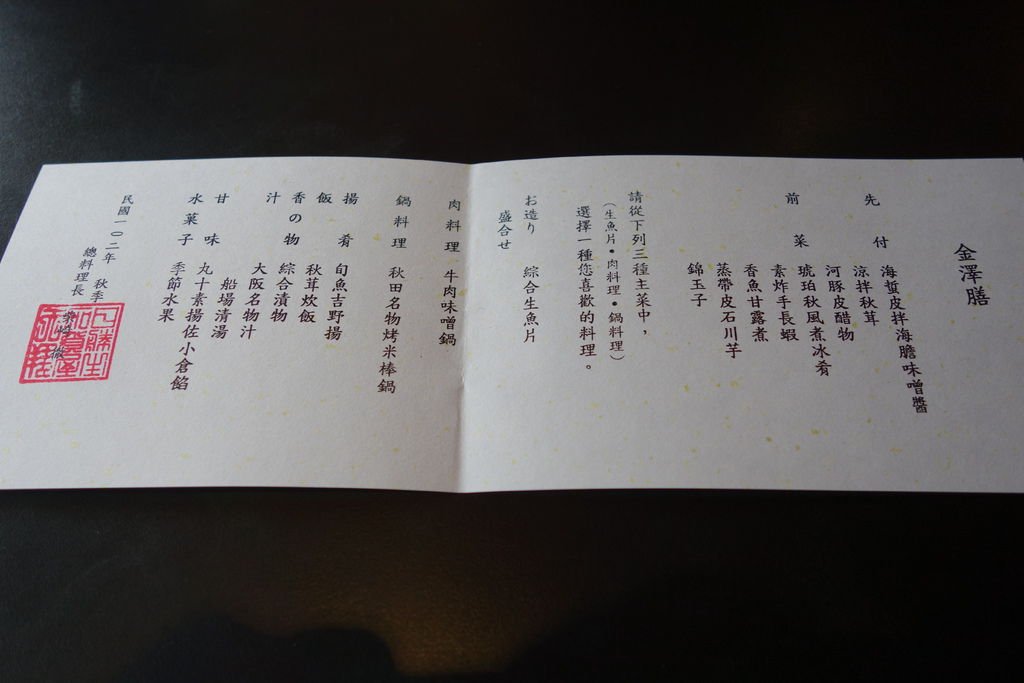 金澤膳
先付 海蜇皮拌海膽味噌醬
涼拌秋茸
河豚皮醋物
前菜 琥珀秋風煮冰肴
素炸手長蝦
香魚甘露煮
蒸帶皮石川芋
錦玉子
請從下列三種主菜中，
（生魚片・肉料理・鍋料理）
選擇一種您喜歡的料理。
お造り
盛合せ 綜合生魚片
肉料理 牛肉味噌鍋
鍋料理 秋田名物烤米棒鍋
揚肴 旬魚吉野揚
飯 秋茸炊飯
香の物 綜合漬物
汁 大阪名物汁
船場清湯
甘味 丸十素揚佐小倉餡
水菓子 季節水果
民國一〇二年 秋季
總料理長